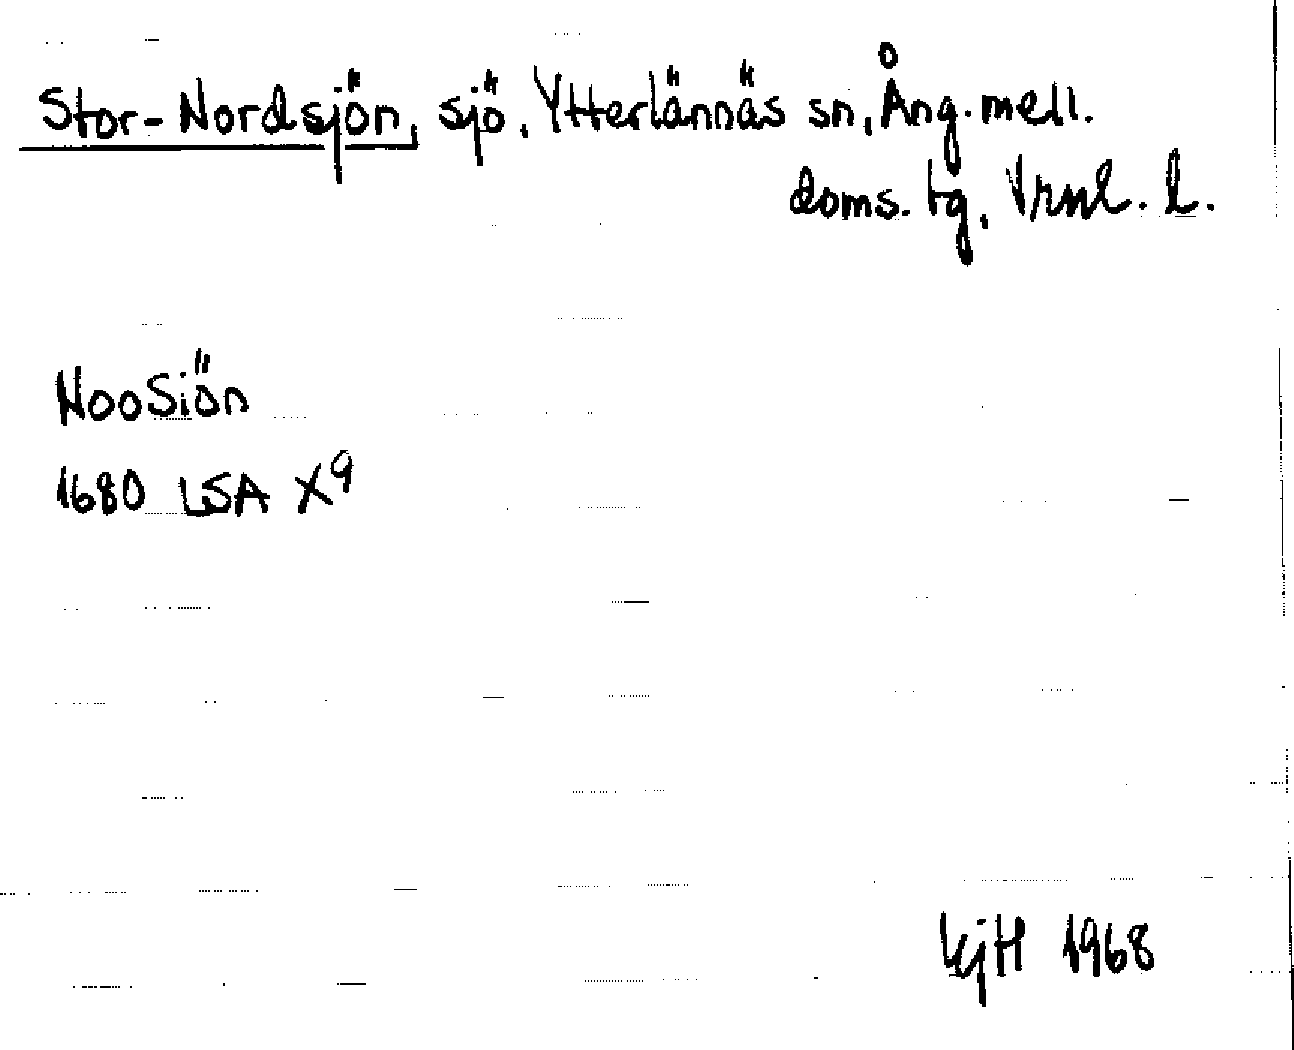 Stor-Nordsjön, sjö, Ytterlännäs sn, Ång. mell.
doms. tg, Vrnl. l.
NooSiön
1680 LSA X9
KjH 1968